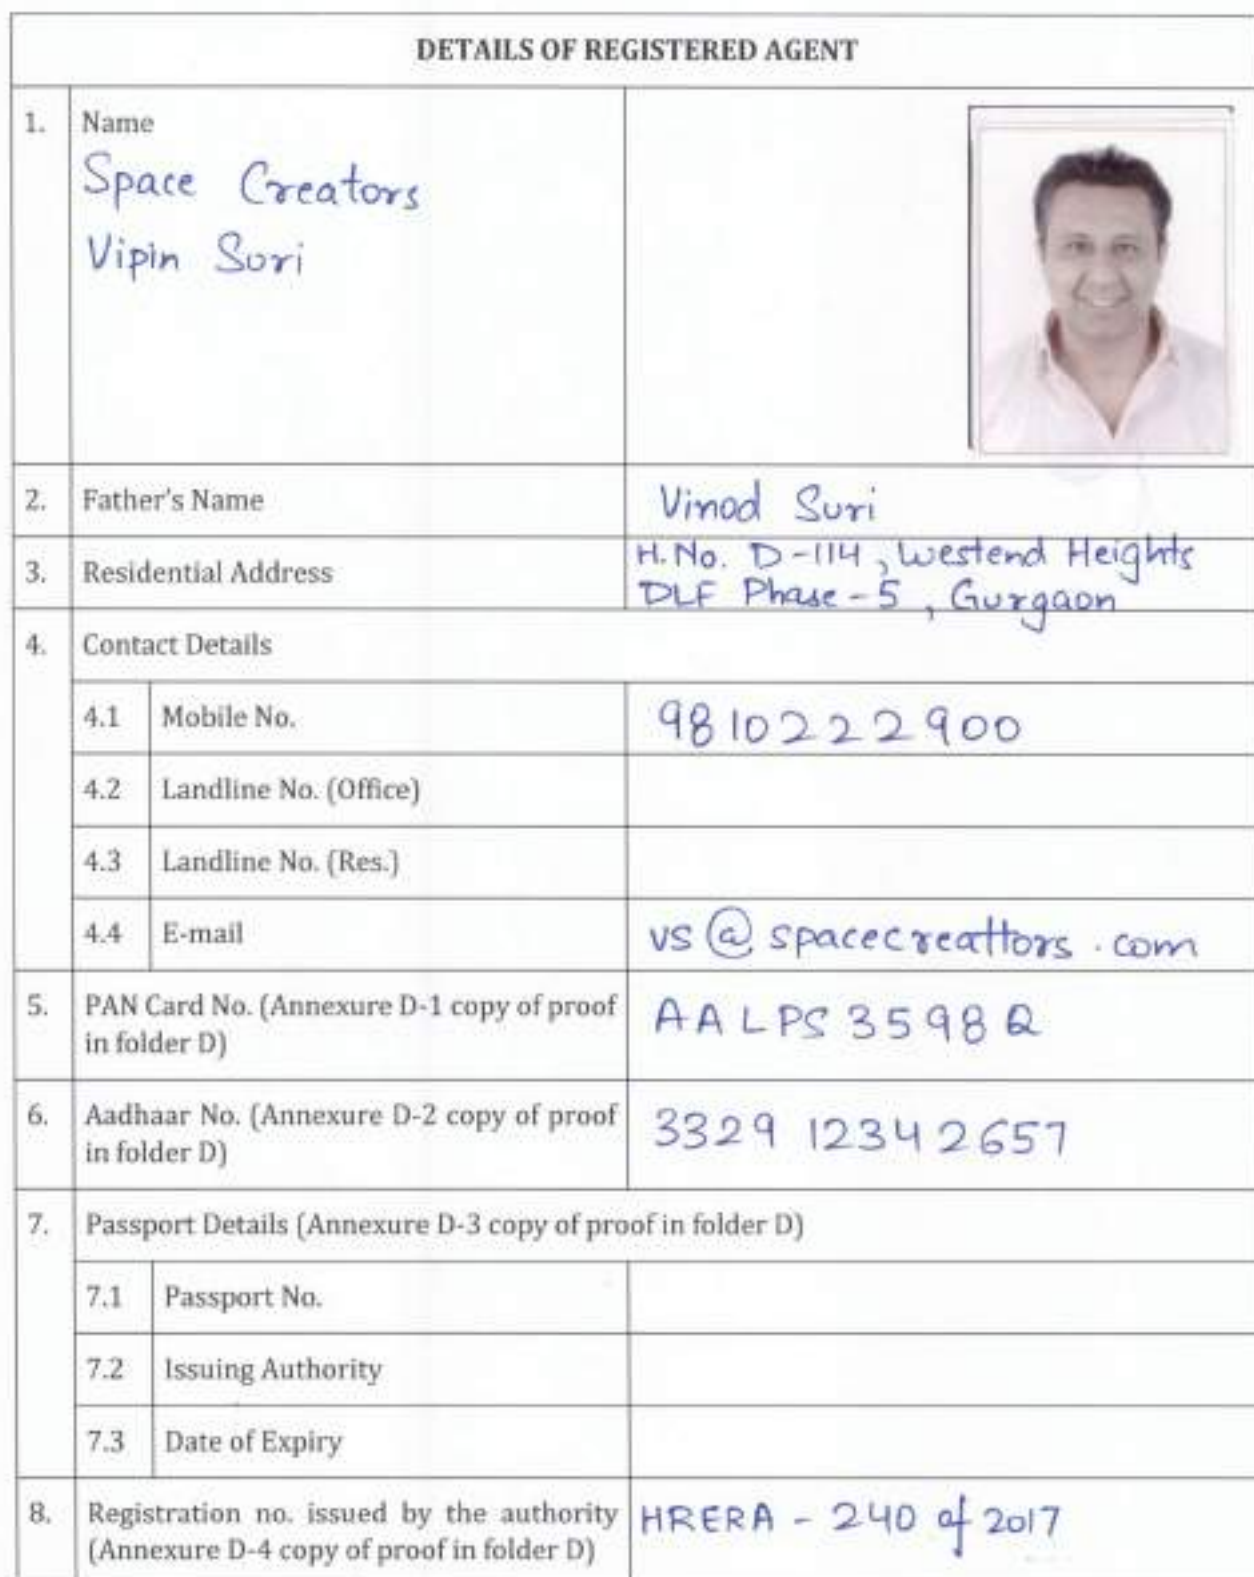 DETAILS OF REGISTERED AGENT
1. Name
Space Creators
Vipin Suri
2. Father's Name Vinod Suri
3. Residential Address H.No. D-114, Westend Heights
DLF Phase-5, Gurgaon
4. Contact Details
4.1 Mobile No. 9810222900
4.2 Landline No. (Office)
4.3 Landline No. (Res.)
4.4 E-mail vs@spacecreattors.com
5. PAN Card No. (Annexure D-1 copy of proof
in folder D) AALPS3598Q
6. Aadhaar No. (Annexure D-2 copy of proof
in folder D) 3329 1234 2657
7. Passport Details (Annexure D-3 copy of proof in folder D)
7.1 Passport No.
7.2 Issuing Authority
7.3 Date of Expiry
8. Registration no. issued by the authority
(Annexure D-4 copy of proof in folder D) HRERA - 240 of 2017